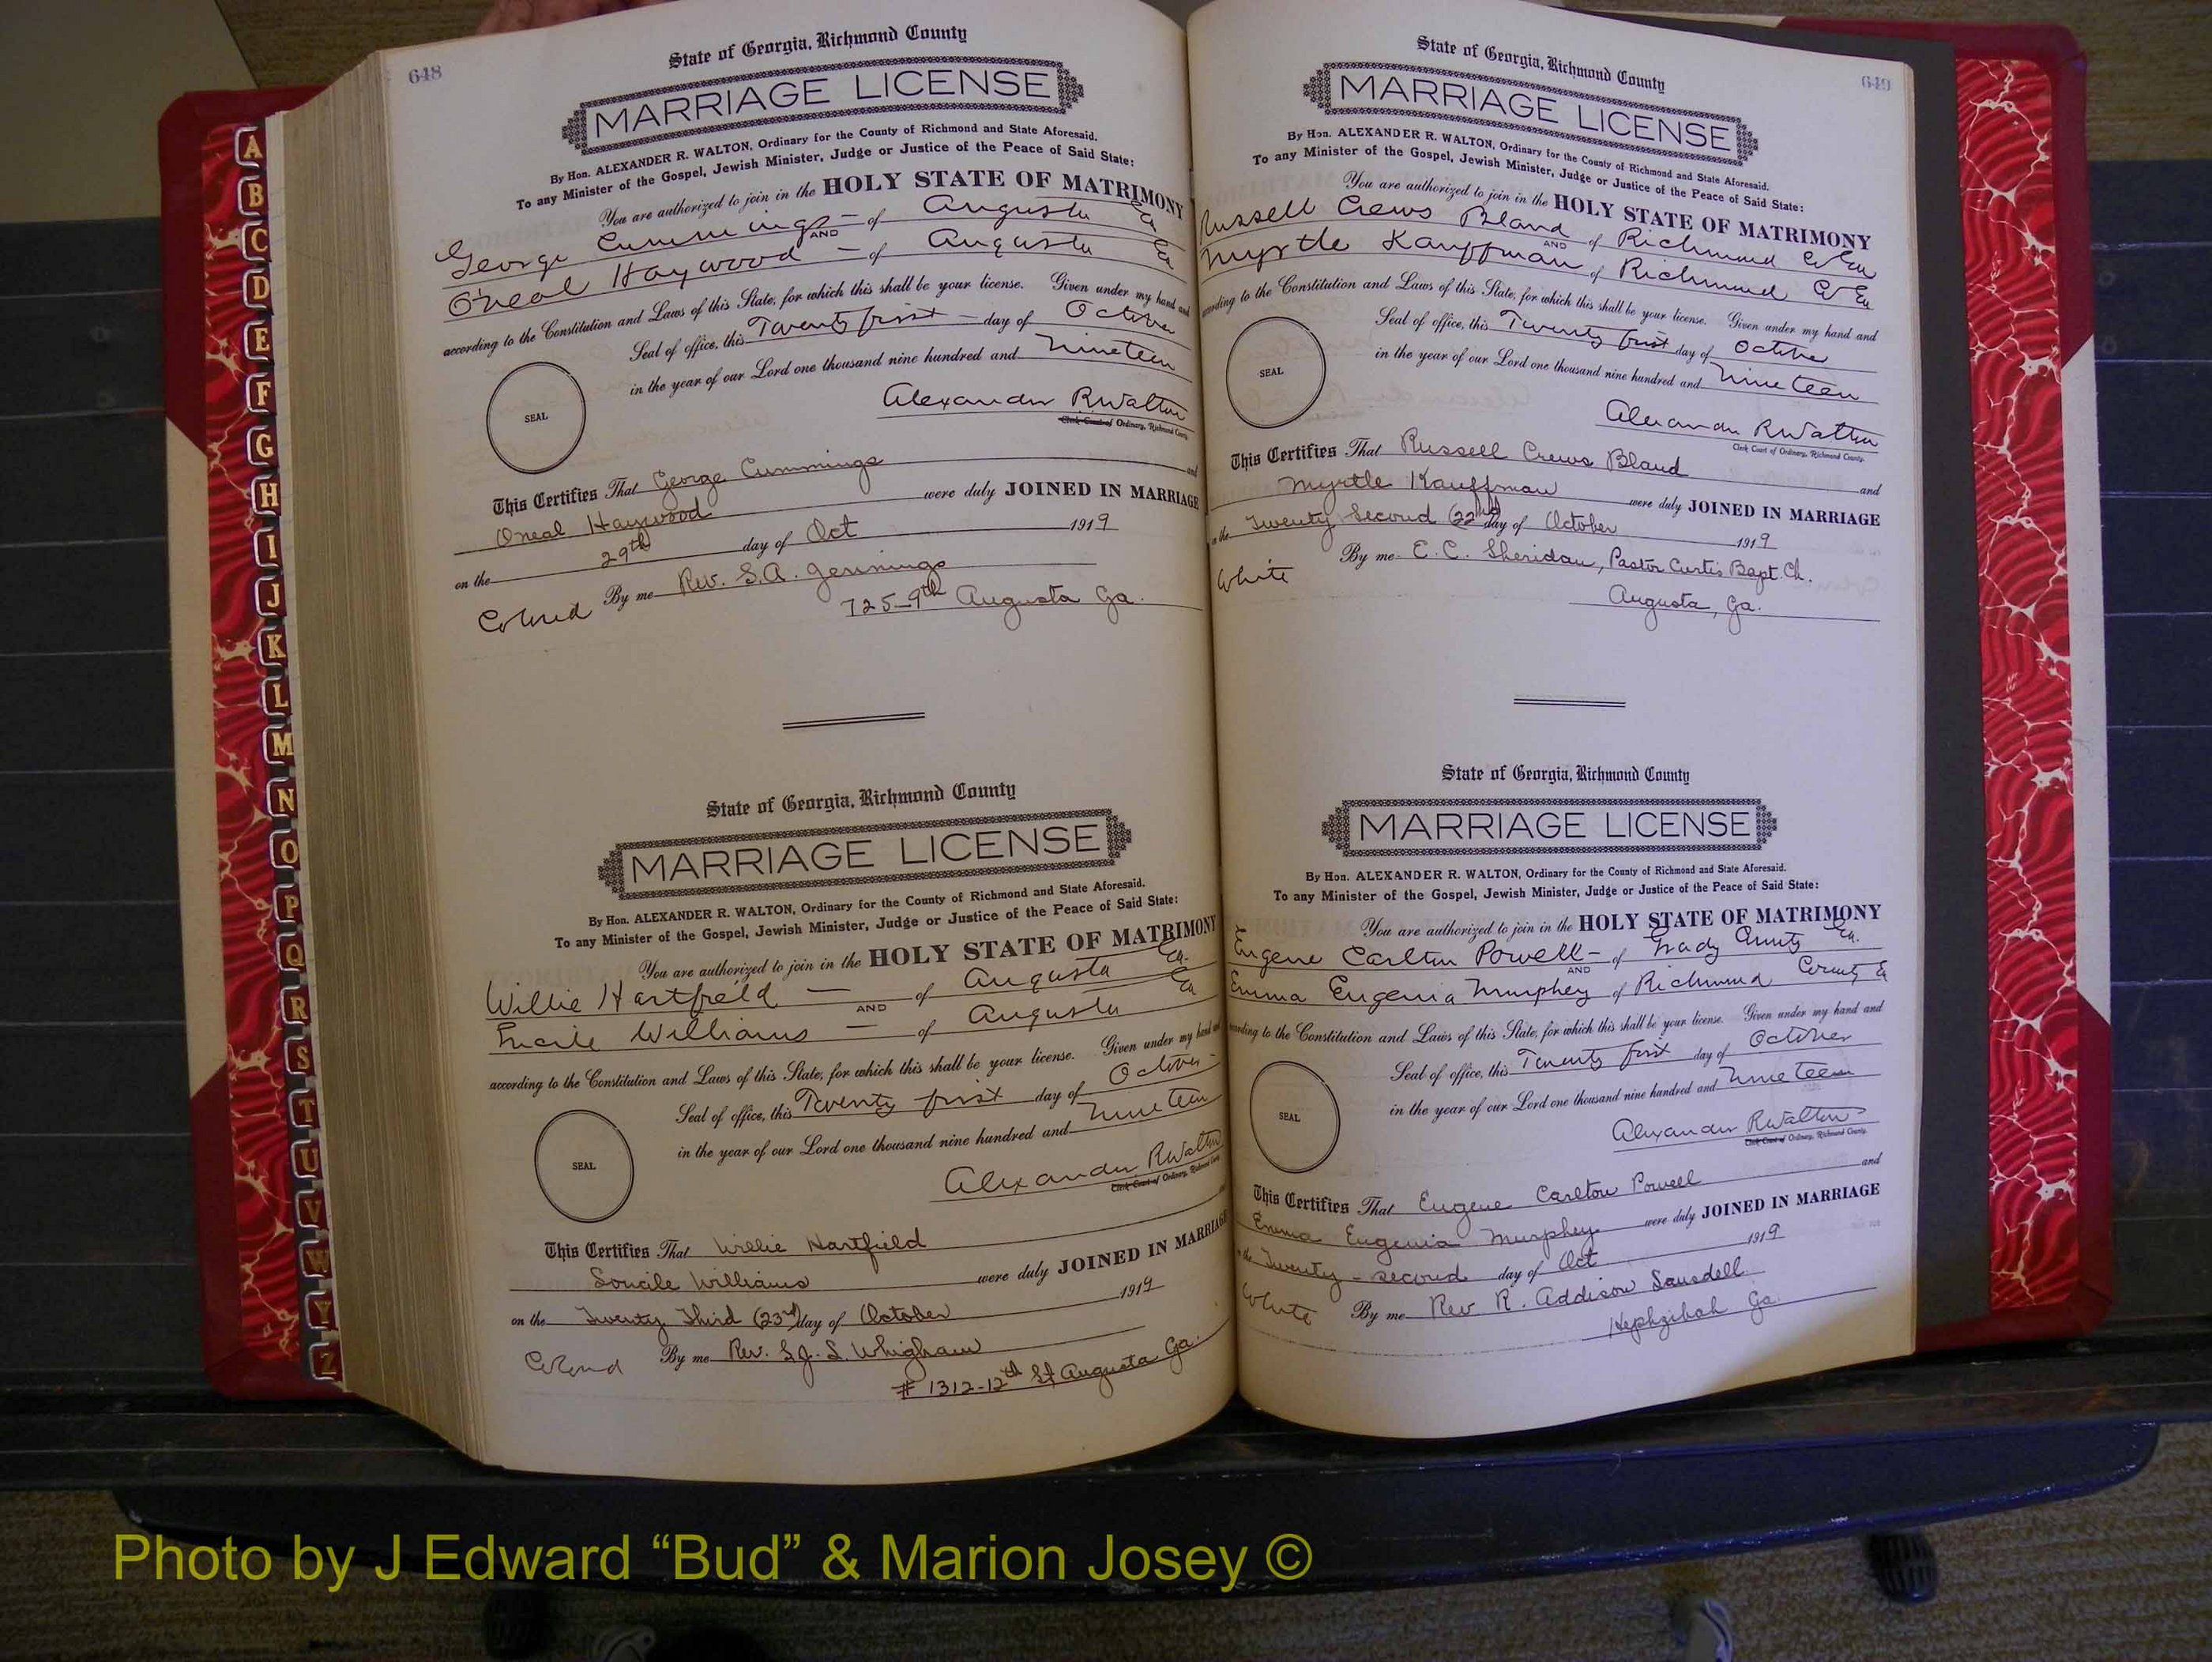 648
State of Georgia, Richmond County
MARRIAGE LICENSE
By Hon. ALEXANDER R. WALTON, Ordinary for the County of Richmond and State Aforesaid.
To any Minister of the Gospel, Jewish Minister, Judge or Justice of the Peace of Said State:
You are authorized to join in the HOLY STATE OF MATRIMONY
George Cummings — of Augusta Ga
AND
O'neal Haywood — of Augusta Ga
according to the Constitution and Laws of this State, for which this shall be your license. Given under my hand and
Seal of office, this Twenty first — day of October
in the year of our Lord one thousand nine hundred and nineteen
SEAL
Alexander R Walton
Clerk Court of Ordinary, Richmond County.
This Certifies That George Cummings and
Oneal Haywood were duly JOINED IN MARRIAGE
on the 29th day of Oct 1919
Colored By me Rev. S.A. Jennings
725-9th Augusta Ga.
State of Georgia, Richmond County
MARRIAGE LICENSE
By Hon. ALEXANDER R. WALTON, Ordinary for the County of Richmond and State Aforesaid.
To any Minister of the Gospel, Jewish Minister, Judge or Justice of the Peace of Said State:
You are authorized to join in the HOLY STATE OF MATRIMONY
Willie Hartfield — of Augusta Ga.
AND
Lucile Williams — of Augusta Ga
according to the Constitution and Laws of this State, for which this shall be your license. Given under my hand and
Seal of office, this Twenty first day of October -
in the year of our Lord one thousand nine hundred and nineteen
SEAL
Alexander R Walton
Clerk Court of Ordinary, Richmond County.
This Certifies That Willie Hartfield
Loucile Williams were duly JOINED IN MARRIAGE
on the Twenty Third (23rd) day of October 1919
Colored By me Rev. S.J.S. Whigham
# 1312-12th St Augusta Ga.
649
State of Georgia, Richmond County
MARRIAGE LICENSE
By Hon. ALEXANDER R. WALTON, Ordinary for the County of Richmond and State Aforesaid.
To any Minister of the Gospel, Jewish Minister, Judge or Justice of the Peace of Said State:
You are authorized to join in the HOLY STATE OF MATRIMONY
Russell Crews Bland of Richmond Co Ga
AND
Myrtle Kauffman of Richmond Co Ga
according to the Constitution and Laws of this State, for which this shall be your license. Given under my hand and
Seal of office, this Twenty first day of October
in the year of our Lord one thousand nine hundred and nineteen
SEAL
Alexander R Walton
Clerk Court of Ordinary, Richmond County.
This Certifies That Russell Crews Bland and
Myrtle Kauffman were duly JOINED IN MARRIAGE
on the Twenty Second (22nd) day of October 1919
White By me E. C. Sheridan, Pastor Curtis Bapt. Ch.
Augusta, Ga.
State of Georgia, Richmond County
MARRIAGE LICENSE
By Hon. ALEXANDER R. WALTON, Ordinary for the County of Richmond and State Aforesaid.
To any Minister of the Gospel, Jewish Minister, Judge or Justice of the Peace of Said State:
You are authorized to join in the HOLY STATE OF MATRIMONY
Eugene Carlton Powell — of Grady County Ga.
AND
Emma Eugenia Murphey of Richmond County Ga
according to the Constitution and Laws of this State, for which this shall be your license. Given under my hand and
Seal of office, this Twenty first day of October
in the year of our Lord one thousand nine hundred and nineteen
SEAL
Alexander R Walton
Clerk Court of Ordinary, Richmond County.
This Certifies That Eugene Carlton Powell and
Emma Eugenia Murphey were duly JOINED IN MARRIAGE
on the Twenty - second day of Oct 1919
White By me Rev R. Addison
Hephzibah Ga.
A
B
C
D
E
F
G
H
I
J
K
L
M
N
O
P
Q
R
S
T
U
V
W
Y
Z
Photo by J Edward “Bud” & Marion Josey ©